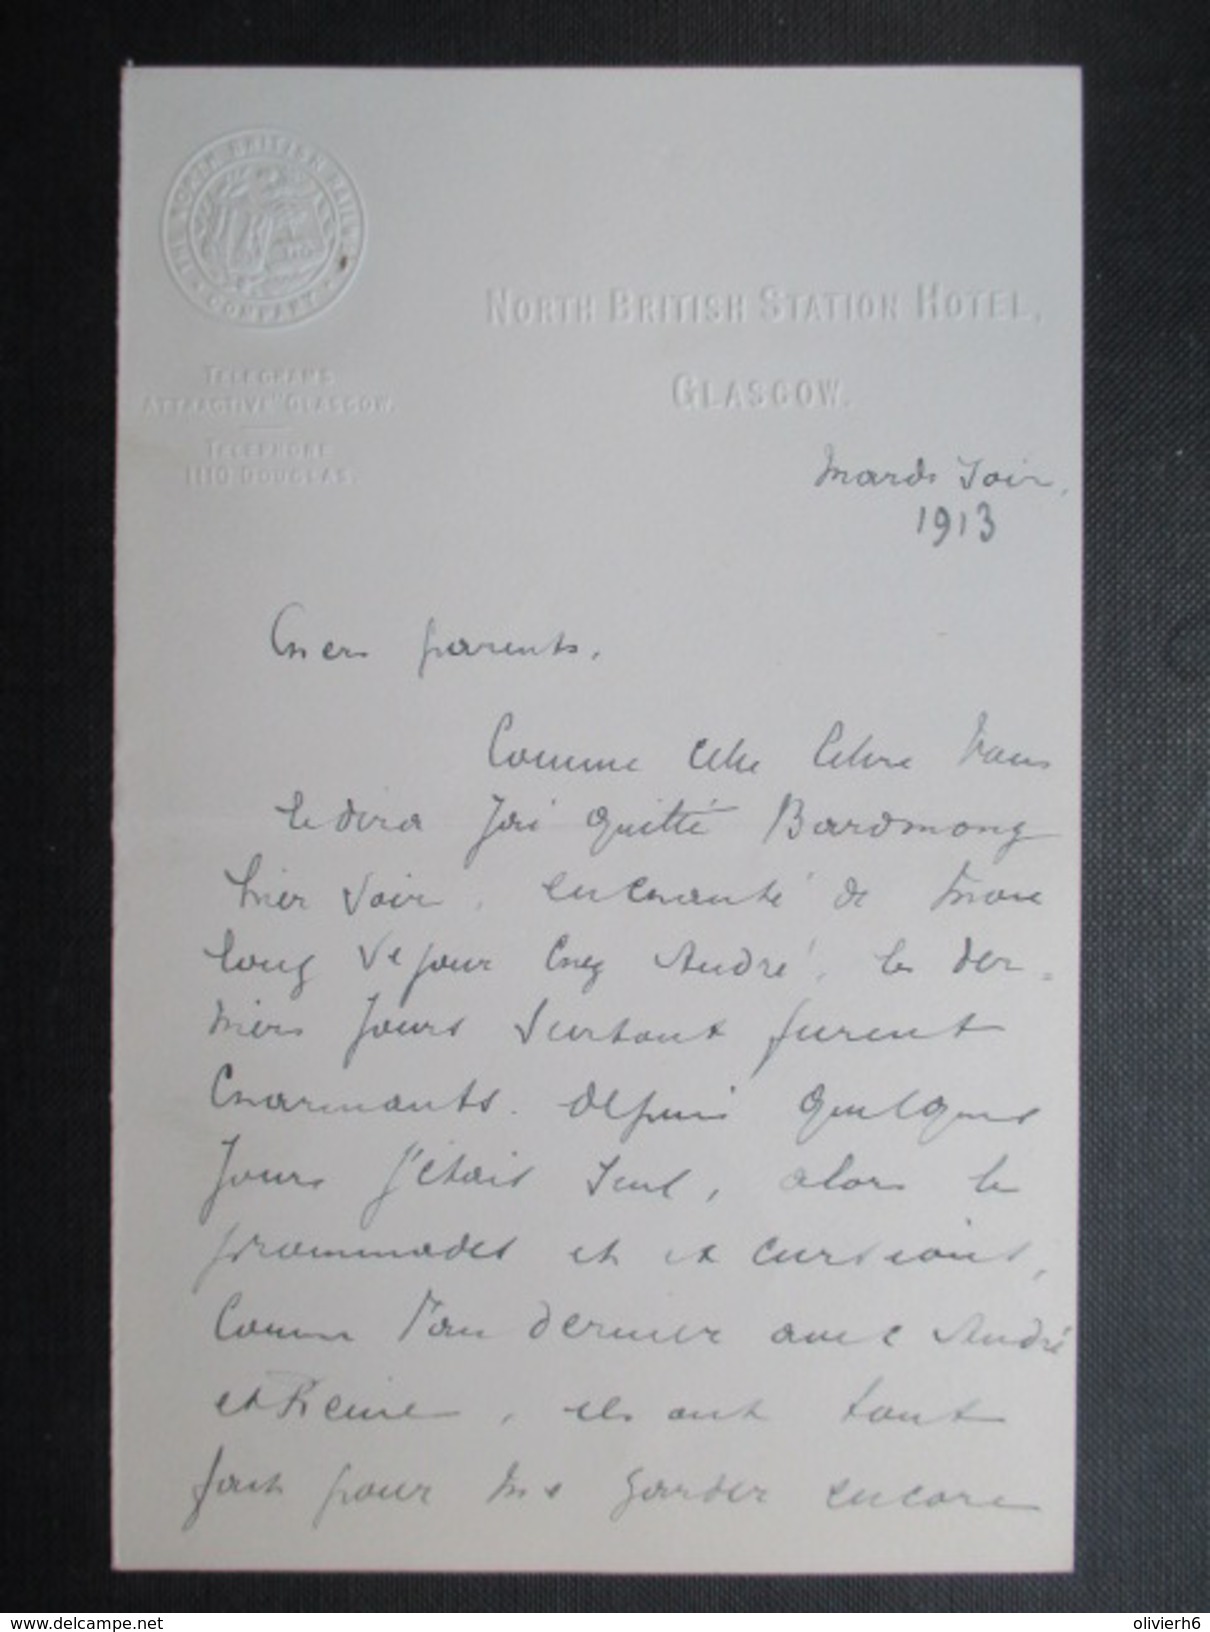 THE NORTH BRITISH RAILWAY COMPANY
NORTH BRITISH STATION HOTEL,
GLASGOW.
TELEGRAMS
"ATTRACTIVE" GLASGOW.
TELEPHONE
1110 DOUGLAS.
Mardi Soir,
1913
Chers parents,
Comme cette lettre vous
le dira j'ai quitté Bardmony
hier soir, enchanté de mon
long séjour chez André, les der-
niers jours surtout furent
charmants. depuis quelques
jours j'étais seul, alors les
prommades et excursions,
comme l'an dernier avec André
et Reine, ils ont tout
fait pour me garder encore
www.delcampe.net
olivierh6